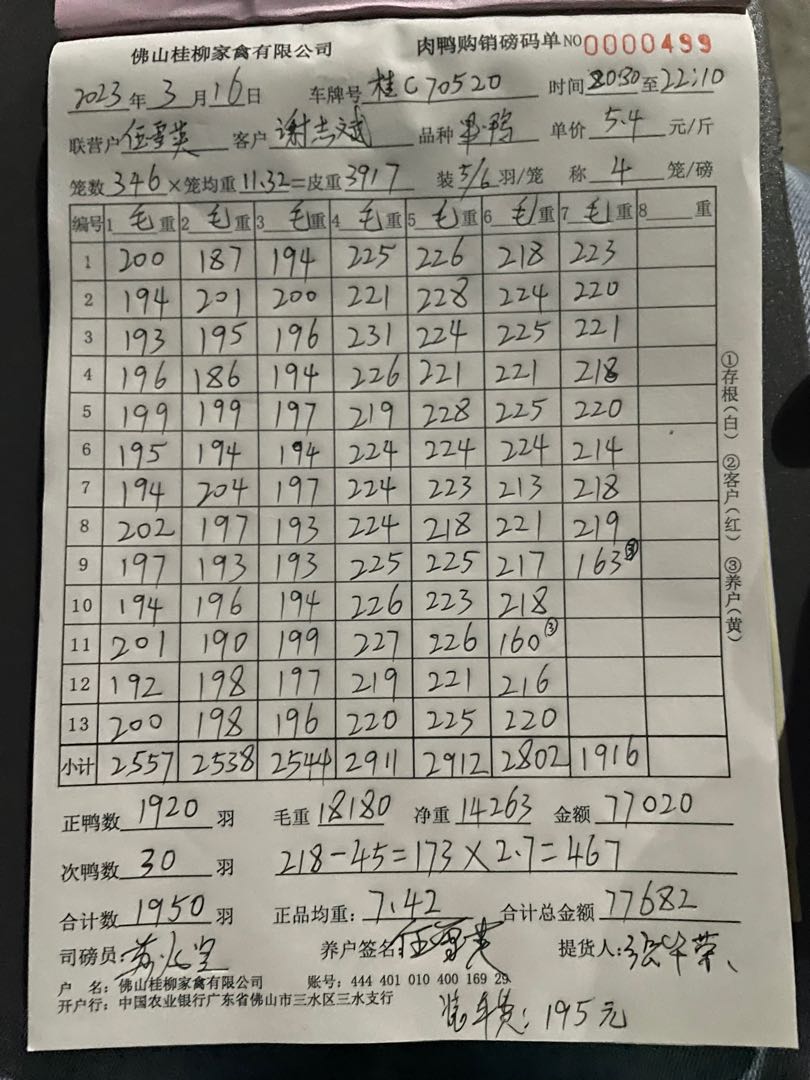 佛山桂柳家禽有限公司 肉鸭购销磅码单 NO 0000499
2023年3月16日 车牌号 桂C70520 时间 20:30至22:10
联营户 伍雪英 客户 谢志斌 品种 单价 5.4 元/斤
笼数 346 ×笼均重 11.32 =皮重 3917 装 5/6 羽/笼 称 4 笼/磅
编号 1 毛重 2 毛重 3 毛重 4 毛重 5 毛重 6 毛重 7 毛重 8 重
1 200 187 194 225 226 218 223
2 194 201 200 221 228 224 220
3 193 195 196 231 224 225 221
4 196 186 194 226 221 221 218
5 199 199 197 219 228 225 220
6 195 194 194 224 224 224 214
7 194 204 197 224 223 213 218
8 202 197 193 224 218 221 219
9 197 193 193 225 225 217 163③
10 194 196 194 226 223 218
11 201 190 199 227 226 160③
12 192 198 197 219 221 216
13 200 198 196 220 225 220
小计 2557 2538 2544 2911 2912 2802 1916
①存根(白) ②客户(红) ③养户(黄)
正鸭数 1920 羽 毛重 18180 净重 14263 金额 77020
次鸭数 30 羽 218-45=173×2.7=467
合计数 1950 羽 正品均重: 7.42 合计总金额 77682
司磅员: 养户签名: 伍雪英 提货人:
户 名: 佛山桂柳家禽有限公司 账号: 444 401 010 400 169 29
开户行: 中国农业银行广东省佛山市三水区三水支行
装车费: 195元